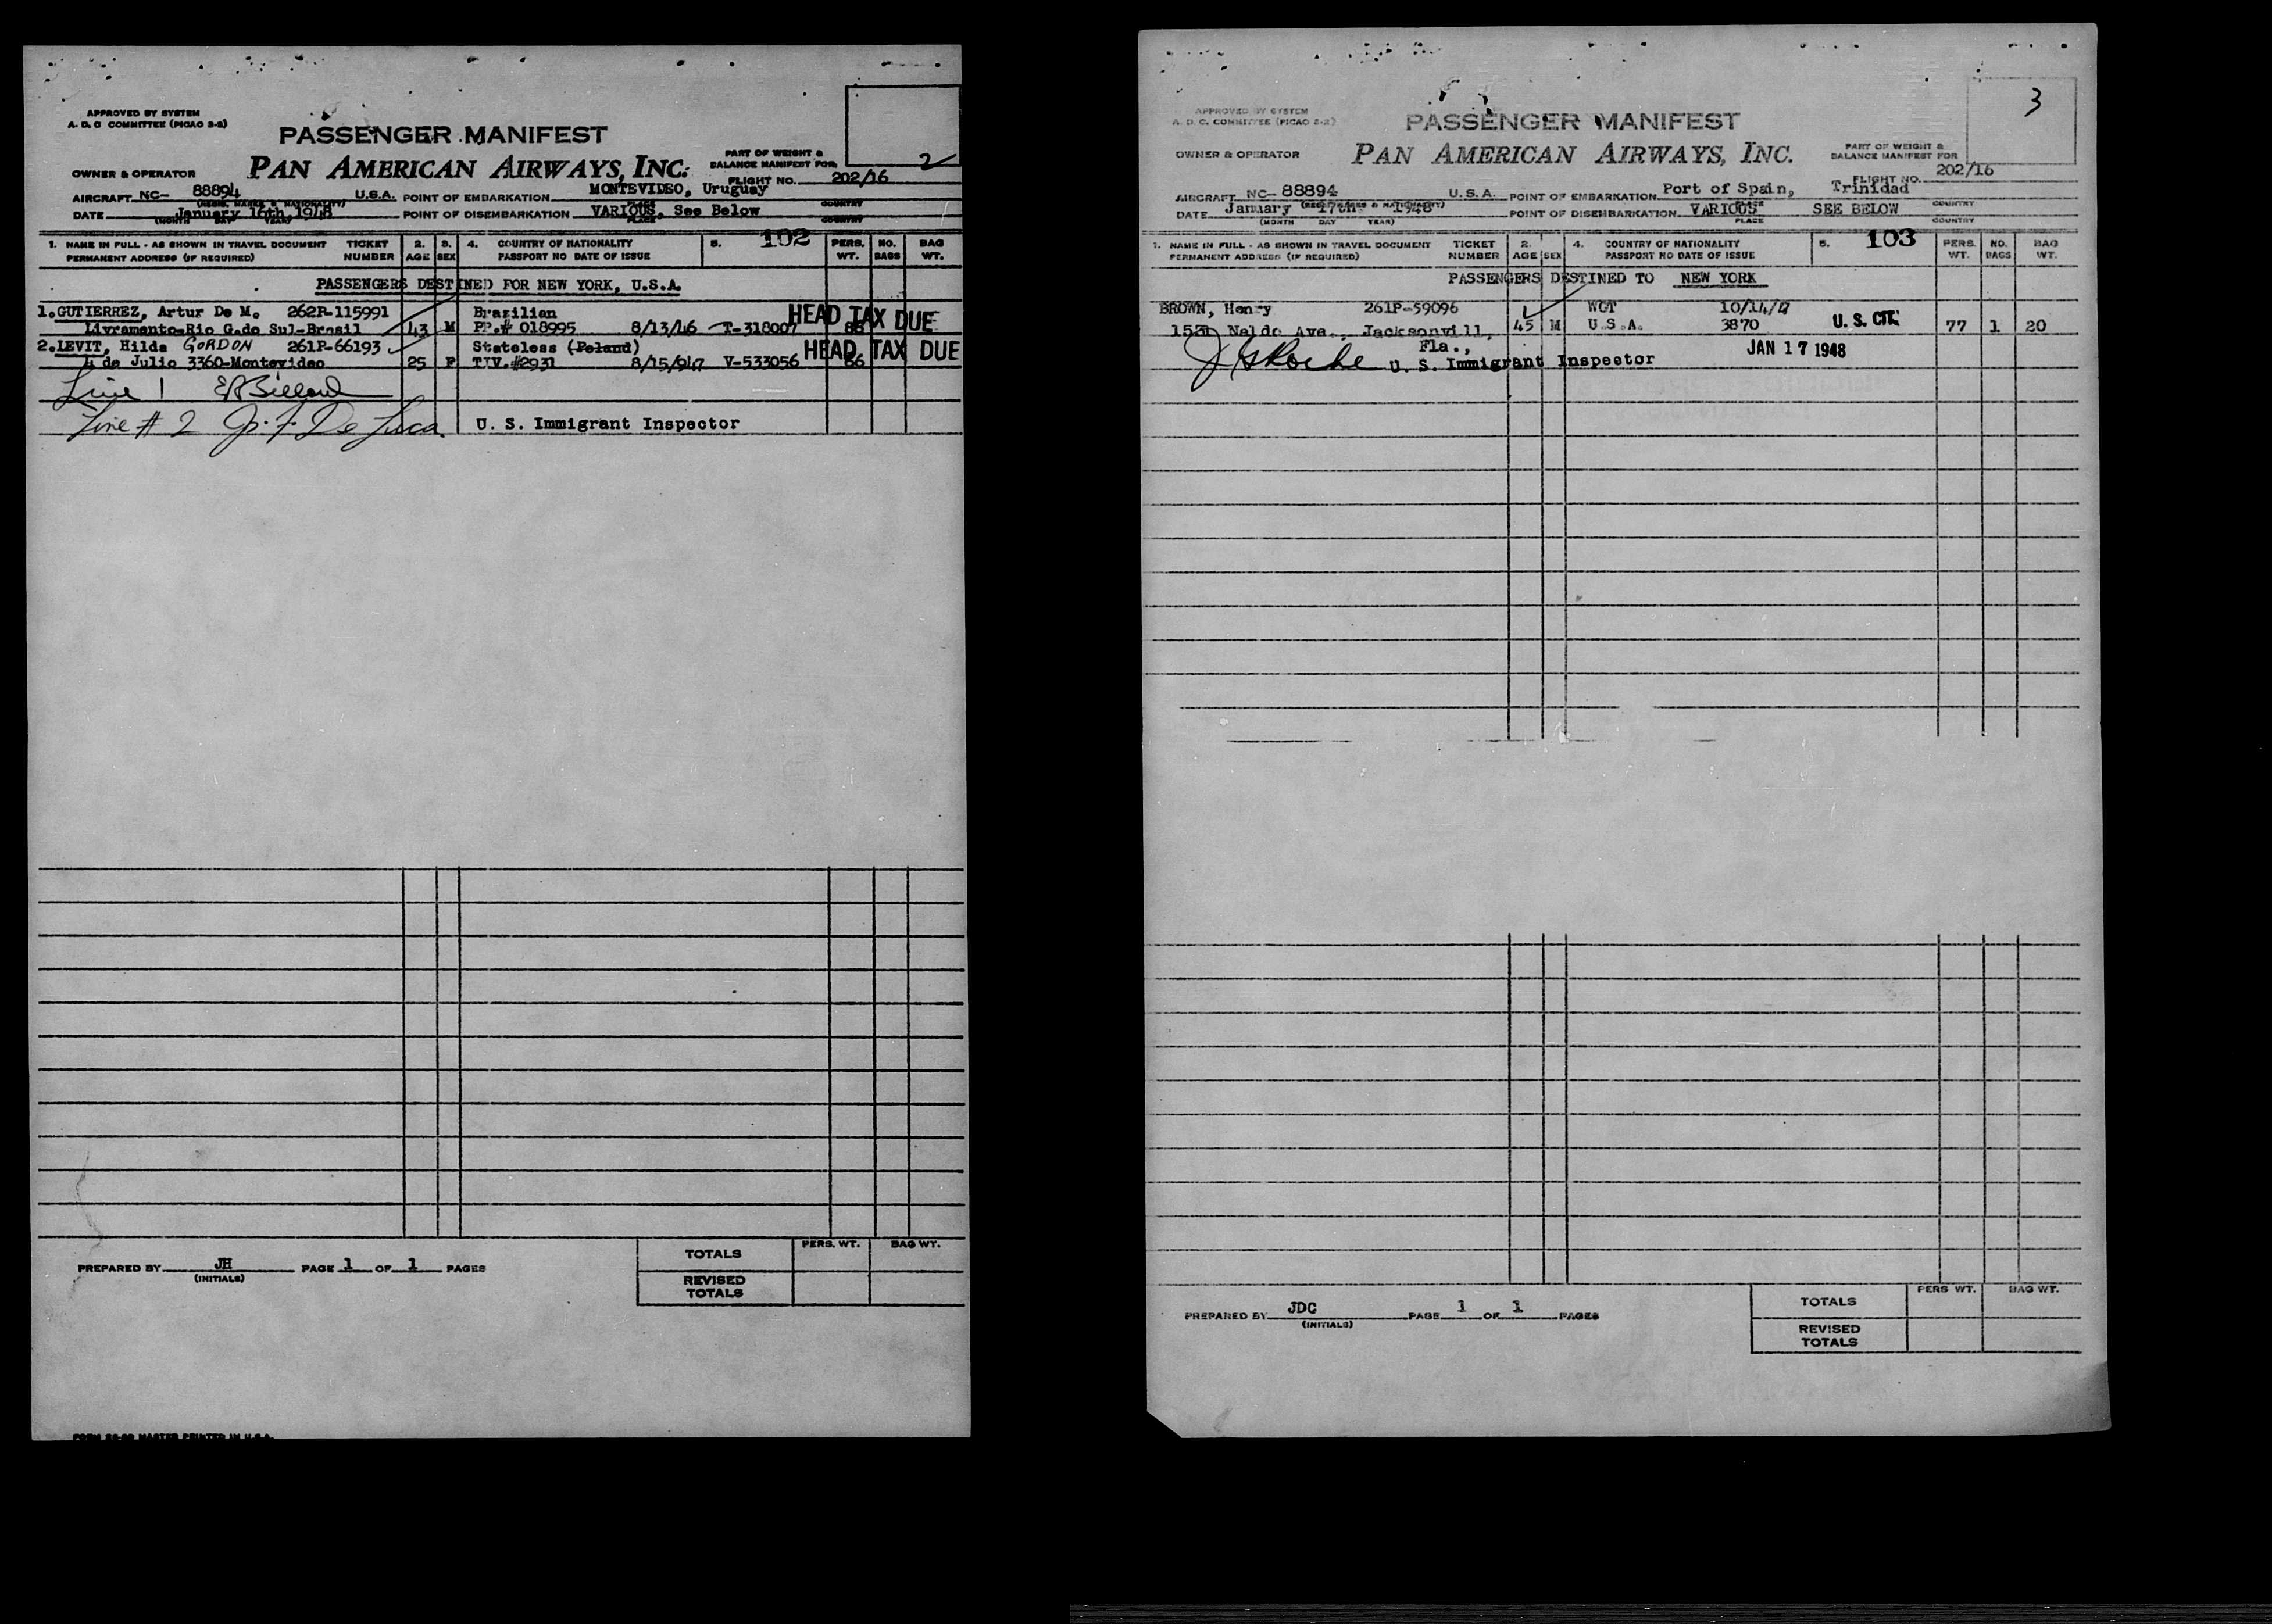 APPROVED BY SYSTEM
A. D. C COMMITTEE (PICAO 2-2)
2
PASSENGER MANIFEST
PART OF WEIGHT &
BALANCE MANIFEST FOR
OWNER & OPERATOR PAN AMERICAN AIRWAYS, INC.
FLIGHT NO. 202/16
AIRCRAFT NC- 88894 U.S.A. POINT OF EMBARKATION MONTEVIDEO, Uruguay
(REGIS. MARKS & NATIONALITY) PLACE COUNTRY
DATE January 16th, 1948 POINT OF DISEMBARKATION VARIOUS, See Below
(MONTH DAY YEAR) PLACE COUNTRY
102
1. NAME IN FULL - AS SHOWN IN TRAVEL DOCUMENT TICKET 2. 3. 4. COUNTRY OF NATIONALITY 5. PERS. NO. BAG
PERMANENT ADDRESS (IF REQUIRED) NUMBER AGE SEX PASSPORT NO DATE OF ISSUE WT. BAGS WT.
PASSENGERS DESTINED FOR NEW YORK, U.S.A.
1. GUTIERREZ, Artur De M. 262P-115991 Brazilian HEAD TAX DUE
Livramento-Rio G.do Sul-Brasil 43 M PP.# 018995 8/13/46 T-318007 88
2. LEVIT, Hilda GORDON 261P-66193 Stateless (Poland) HEAD TAX DUE
4 de Julio 3360-Montevideo 25 F T.V.#2931 8/15/947 V-533056 66
Line 1
Line # 2 J. F. De Luca U. S. Immigrant Inspector
PERS. WT. BAG WT.
TOTALS
PREPARED BY JH PAGE 1 OF 1 PAGES
(INITIALS)
REVISED
TOTALS
FORM PRINTED IN U.S.A.
APPROVED BY SYSTEM
A. D. C. COMMITTEE (PICAO 2-2)
3
PASSENGER MANIFEST
PART OF WEIGHT &
BALANCE MANIFEST FOR
OWNER & OPERATOR PAN AMERICAN AIRWAYS, INC.
FLIGHT NO. 202/16
AIRCRAFT NC- 88894 U.S.A. POINT OF EMBARKATION Port of Spain, Trinidad
(REGIS. MARKS & NATIONALITY) PLACE COUNTRY
DATE January 17th 1948 POINT OF DISEMBARKATION VARIOUS SEE BELOW
(MONTH DAY YEAR) PLACE COUNTRY
103
1. NAME IN FULL - AS SHOWN IN TRAVEL DOCUMENT TICKET 2. 4. COUNTRY OF NATIONALITY 5. PERS. NO. BAG
PERMANENT ADDRESS (IF REQUIRED) NUMBER AGE SEX PASSPORT NO DATE OF ISSUE WT. BAGS WT.
PASSENGERS DESTINED TO NEW YORK
BROWN, Henry 261P-59096 WOT 10/14/47
Naldo Ave., Jacksonvill, 45 M U.S.A. 3870 U.S. CIT. 77 1 20
Fla.,
JAN 17 1948
U. S. Immigrant Inspector
PERS WT. BAG WT.
TOTALS
PREPARED BY JDC PAGE 1 OF 1 PAGES
(INITIALS)
REVISED
TOTALS